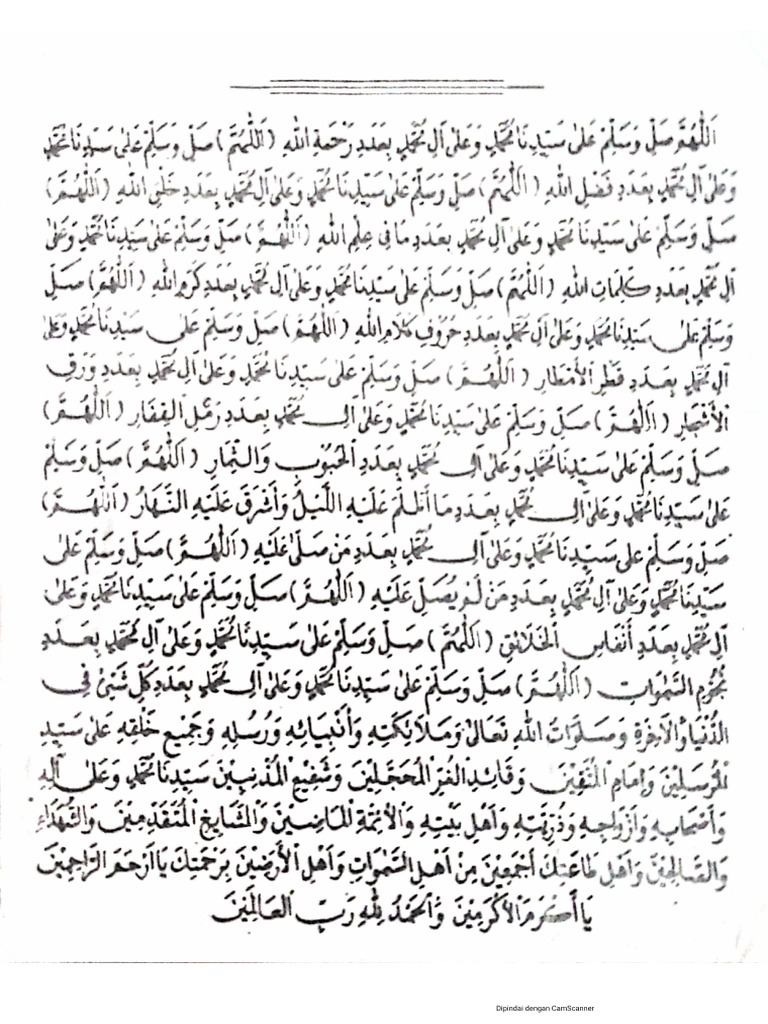 اَللّٰهُمَّ صَلِّ وَسَلِّمْ عَلٰى سَيِّدِنَا مُحَمَّدٍ وَعَلٰى آلِ مُحَمَّدٍ بِعَدَدِ رَحْمَةِ اللّٰهِ (اَللّٰهُمَّ) صَلِّ وَسَلِّمْ عَلٰى سَيِّدِنَا مُحَمَّدٍ
وَعَلٰى آلِ مُحَمَّدٍ بِعَدَدِ فَضْلِ اللّٰهِ (اَللّٰهُمَّ) صَلِّ وَسَلِّمْ عَلٰى سَيِّدِنَا مُحَمَّدٍ وَعَلٰى آلِ مُحَمَّدٍ بِعَدَدِ خَلْقِ اللّٰهِ (اَللّٰهُمَّ)
صَلِّ وَسَلِّمْ عَلٰى سَيِّدِنَا مُحَمَّدٍ وَعَلٰى آلِ مُحَمَّدٍ بِعَدَدِ مَا فِى عِلْمِ اللّٰهِ (اَللّٰهُمَّ) صَلِّ وَسَلِّمْ عَلٰى سَيِّدِنَا مُحَمَّدٍ وَعَلٰى
آلِ مُحَمَّدٍ بِعَدَدِ كَلِمَاتِ اللّٰهِ (اَللّٰهُمَّ) صَلِّ وَسَلِّمْ عَلٰى سَيِّدِنَا مُحَمَّدٍ وَعَلٰى آلِ مُحَمَّدٍ بِعَدَدِ كَرَمِ اللّٰهِ (اَللّٰهُمَّ) صَلِّ
وَسَلِّمْ عَلٰى سَيِّدِنَا مُحَمَّدٍ وَعَلٰى آلِ مُحَمَّدٍ بِعَدَدِ حُرُوْفِ كَلَامِ اللّٰهِ (اَللّٰهُمَّ) صَلِّ وَسَلِّمْ عَلٰى سَيِّدِنَا مُحَمَّدٍ وَعَلٰى
آلِ مُحَمَّدٍ بِعَدَدِ قَطْرِ الْأَمْطَارِ (اَللّٰهُمَّ) صَلِّ وَسَلِّمْ عَلٰى سَيِّدِنَا مُحَمَّدٍ وَعَلٰى آلِ مُحَمَّدٍ بِعَدَدِ وَرَقِ
الْأَشْجَارِ (اَللّٰهُمَّ) صَلِّ وَسَلِّمْ عَلٰى سَيِّدِنَا مُحَمَّدٍ وَعَلٰى آلِ مُحَمَّدٍ بِعَدَدِ رَمْلِ الْقِفَارِ (اَللّٰهُمَّ)
صَلِّ وَسَلِّمْ عَلٰى سَيِّدِنَا مُحَمَّدٍ وَعَلٰى آلِ مُحَمَّدٍ بِعَدَدِ الْحُبُوْبِ وَالثِّمَارِ (اَللّٰهُمَّ) صَلِّ وَسَلِّمْ
عَلٰى سَيِّدِنَا مُحَمَّدٍ وَعَلٰى آلِ مُحَمَّدٍ بِعَدَدِ مَا أَظْلَمَ عَلَيْهِ اللَّيْلُ وَأَشْرَقَ عَلَيْهِ النَّهَارُ (اَللّٰهُمَّ)
صَلِّ وَسَلِّمْ عَلٰى سَيِّدِنَا مُحَمَّدٍ وَعَلٰى آلِ مُحَمَّدٍ بِعَدَدِ مَنْ صَلّٰى عَلَيْهِ (اَللّٰهُمَّ) صَلِّ وَسَلِّمْ عَلٰى
سَيِّدِنَا مُحَمَّدٍ وَعَلٰى آلِ مُحَمَّدٍ بِعَدَدِ مَنْ لَمْ يُصَلِّ عَلَيْهِ (اَللّٰهُمَّ) صَلِّ وَسَلِّمْ عَلٰى سَيِّدِنَا مُحَمَّدٍ وَعَلٰى
آلِ مُحَمَّدٍ بِعَدَدِ أَنْفَاسِ الْخَلَائِقِ (اَللّٰهُمَّ) صَلِّ وَسَلِّمْ عَلٰى سَيِّدِنَا مُحَمَّدٍ وَعَلٰى آلِ مُحَمَّدٍ بِعَدَدِ
نُجُوْمِ السَّمٰوَاتِ (اَللّٰهُمَّ) صَلِّ وَسَلِّمْ عَلٰى سَيِّدِنَا مُحَمَّدٍ وَعَلٰى آلِ مُحَمَّدٍ بِعَدَدِ كُلِّ شَيْئٍ فِى
الدُّنْيَا وَالْآخِرَةِ وَصَلَوَاتُ اللّٰهِ تَعَالٰى وَمَلَائِكَتِهِ وَأَنْبِيَائِهِ وَرُسُلِهِ وَجَمِيْعِ خَلْقِهِ عَلٰى سَيِّدِ
الْمُرْسَلِيْنَ وَإِمَامِ الْمُتَّقِيْنَ وَقَائِدِ الْغُرِّ الْمُحَجَّلِيْنَ وَشَفِيْعِ الْمُذْنِبِيْنَ سَيِّدِنَا مُحَمَّدٍ وَعَلٰى آلِهِ
وَأَصْحَابِهِ وَأَزْوَاجِهِ وَذُرِّيَّتِهِ وَأَهْلِ بَيْتِهِ وَالْأَئِمَّةِ الْمَاضِيْنَ وَالْمَشَايِخِ الْمُتَقَدِّمِيْنَ وَالشُّهَدَاءِ
وَالصَّالِحِيْنَ وَأَهْلِ طَاعَتِكَ أَجْمَعِيْنَ مِنْ أَهْلِ السَّمٰوَاتِ وَأَهْلِ الْأَرَضِيْنَ بِرَحْمَتِكَ يَا أَرْحَمَ الرَّاحِمِيْنَ
يَا أَكْرَمَ الْأَكْرَمِيْنَ وَالْحَمْدُ لِلّٰهِ رَبِّ الْعَالَمِيْنَ
Dipindai dengan CamScanner